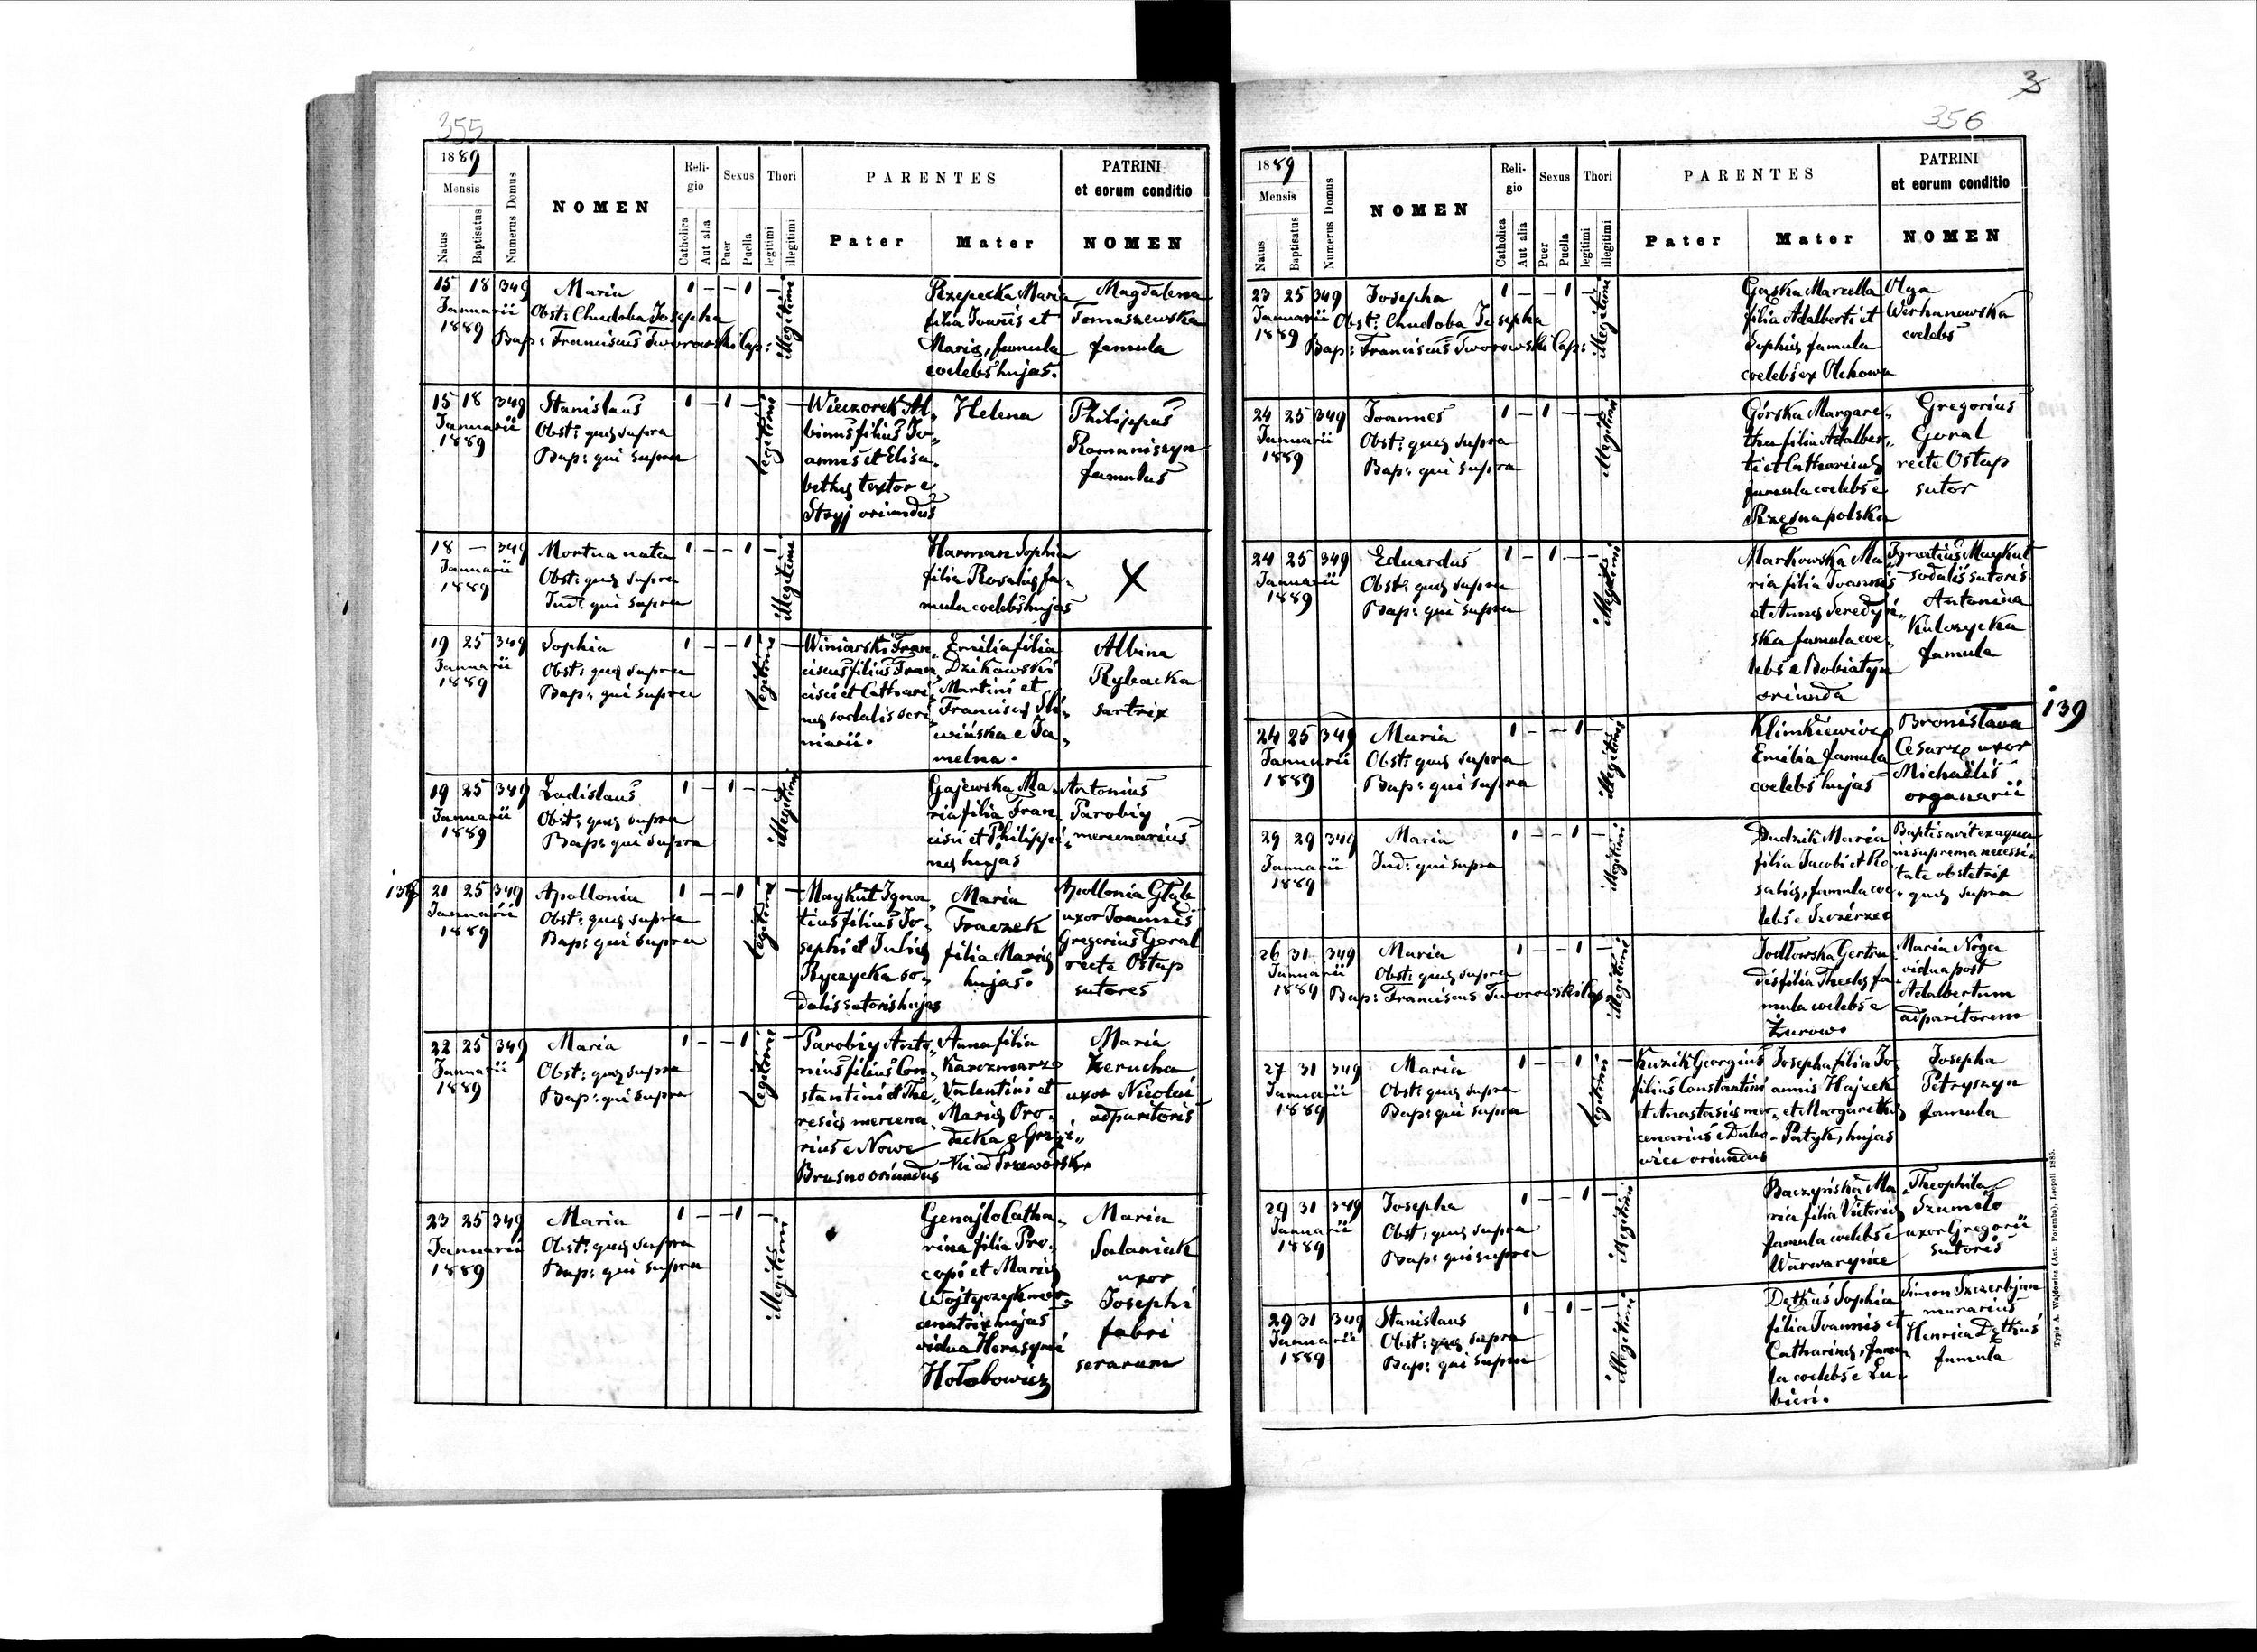 355
1889
Mensis
Natus
Baptisatus
Numerus Domus
NOMEN
Reli-
gio
Catholica
Aut alia
Sexus
Puer
Puella
Thori
legitimi
illegitimi
PARENTES
Pater
Mater
PATRINI
et eorum conditio
NOMEN
15 18 349
Januarii
1889
Maria
Obst: Chudoba Josepha
Bap: Franciscus Tworowski Cap:
1 – – 1 –
illegitimi
Rzepecka Maria
filia Joannis et
Mariæ, famula
coelebs hujas.
Magdalena
Tomaszewska
famula
15 18 349
Januarii
1889
Stanislaus
Obst: quæ supra
Bap: qui supra
1 – 1 – –
legitimi
Wieczorek Al„
binus filius Jo„
annis et Elisa„
bethæ textor e
Stryj oriundus
Helena
Philippus
Romaniszyn
famulus
18 – 349
Januarii
1889
Mortua nata
Obst: quæ supra
Ind: qui supra
1 – – 1 –
illegitimi
Harman Sophia
filia Rosaliæ fa„
mula coelebs hujas
X
19 25 349
Januarii
1889
Sophia
Obst: quæ supra
Bap: qui supra
1 – – 1 –
legitimi
Winiarski Fran„
ciscus filius Fran„
cisci et Cathari„
næ sodalis scri„
niarii.
Emilia filia
Dzikowski
Martini et
Franciscæ Śli„
wińska e Ja„
melna.
Albina
Rybacka
sartrix
19 25 349
Januarii
1889
Ladislaus
Obst: quæ supra
Bap: qui supra
1 – 1 – –
illegitimi
Gajewska Ma„
ria filia Fran„
cisci et Philippi„
næ hujas
Antonius
Parobiy
mercenarius
138
21 25 349
Januarii
1889
Apollonia
Obst: quæ supra
Bap: qui supra
1 – – 1 –
legitimi
Maykut Igna„
tius filius Jo„
sephi et Juliæ
Ryczycka so„
dalis sutoris hujas
Maria
Traczek
filia Mariæ
hujas.
Apollonia Głąb
uxor Joannis
Gregorius Goral
recte Ostap
sutores
22 25 349
Januarii
1889
Maria
Obst: quæ supra
Bap: qui supra
1 – – 1 –
legitimi
Parobiy Anto„
nius filius Con„
stantini et The„
resiæ mercena„
rius e Nowe
Brusno oriundus
Anna filia
Karczmarz
Valentini et
Mariæ Oro„
decka e Grzęs„
ki ad Przeworsk
Maria
Żerucha
uxor Nicolai
adparitoris
23 25 349
Januarii
1889
Maria
Obst: quæ supra
Bap: qui supra
1 – – 1 –
illegitimi
Genajło Catha„
rina filia Pro„
copi et Mariæ
Wojtyczyk mer„
cenatrix hujas
vidua Herasymi
Hołobowicz
Maria
Salaniuk
uxor
Josephi
fabri
serarum
3
356
1889
Mensis
Natus
Baptisatus
Numerus Domus
NOMEN
Reli-
gio
Catholica
Aut alia
Sexus
Puer
Puella
Thori
legitimi
illegitimi
PARENTES
Pater
Mater
PATRINI
et eorum conditio
NOMEN
23 25 349
Januarii
1889
Josepha
Obst: Chudoba Josepha
Bap: Franciscus Tworowski Cap:
1 – – 1 –
illegitimi
Gaska Marcella
filia Adalberti et
Sophiæ famula
coelebs ex Olchowa
Olga
Werhanowska
coelebs
24 25 349
Januarii
1889
Joannes
Obst: quæ supra
Bap: qui supra
1 – 1 – –
illegitimi
Górska Margare„
tha filia Adalber„
ti et Catharinæ
famula coelebs e
Rzęsna polska
Gregorius
Goral
recte Ostap
sutor
24 25 349
Januarii
1889
Eduardus
Obst: quæ supra
Bap: qui supra
1 – 1 – –
illegitimi
Markowska Ma„
ria filia Joannis
et Annæ Seredyń„
ska famula coe„
lebs e Bobiatyn
oriunda
Ignatius Maykut
sodalis sutoris
Antonina
Kulczycka
famula
139
24 25 349
Januarii
1889
Maria
Obst: quæ supra
Bap: qui supra
1 – – 1 –
illegitimi
Klimkiewicz
Emilia famula
coelebs hujas
Bronisłava
Cesarz uxor
Michaëlis
organarii
29 29 349
Januarii
1889
Maria
Ind: qui supra
1 – – 1 –
illegitimi
Dudzik Maria
filia Jacobi et Ro„
saliæ, famula coe„
lebs e Szczérzec
Baptisavit ex aqua
in suprema necessi„
tate obstetrix
quæ supra
26 31 349
Januarii
1889
Maria
Obst: quæ supra
Bap: Franciscus Tworowski Cap:
1 – – 1 –
illegitimi
Jodłowska Gertru„
dis filia Theclæ fa„
mula coelebs e
Żurow
Maria Noga
vidua post
Adalbertum
adparitorem
27 31 349
Januarii
1889
Maria
Obst: quæ supra
Bap: qui supra
1 – – 1 –
legitimi
Kuzik Georgius
filius Constantini
et Anastasiæ mer„
cenarius e Dubo„
wice oriundus
Josepha filia Jo„
annis Hajzek
et Margarethæ
Patyk, hujas
Josepha
Petryszyn
famula
29 31 349
Januarii
1889
Josepha
Obst: quæ supra
Bap: qui supra
1 – – 1 –
illegitimi
Baczyńska Ma„
ria filia Victoriæ
famula coelebs e
Warwaryńce
Theophila
Szumilo
uxor Gregorii
sutoris
29 31 349
Januarii
1889
Stanislaus
Obst: quæ supra
Bap: qui supra
1 – 1 – –
illegitimi
Detkuś Sophia
filia Joannis et
Catharinæ, famu„
la coelebs e Lu„
bień.
Simon Szczerbjan
murarius
Henrica Detkuś
famula
Typis A. Wajdowicz (Ant. Poremba), Leopoli 1885.